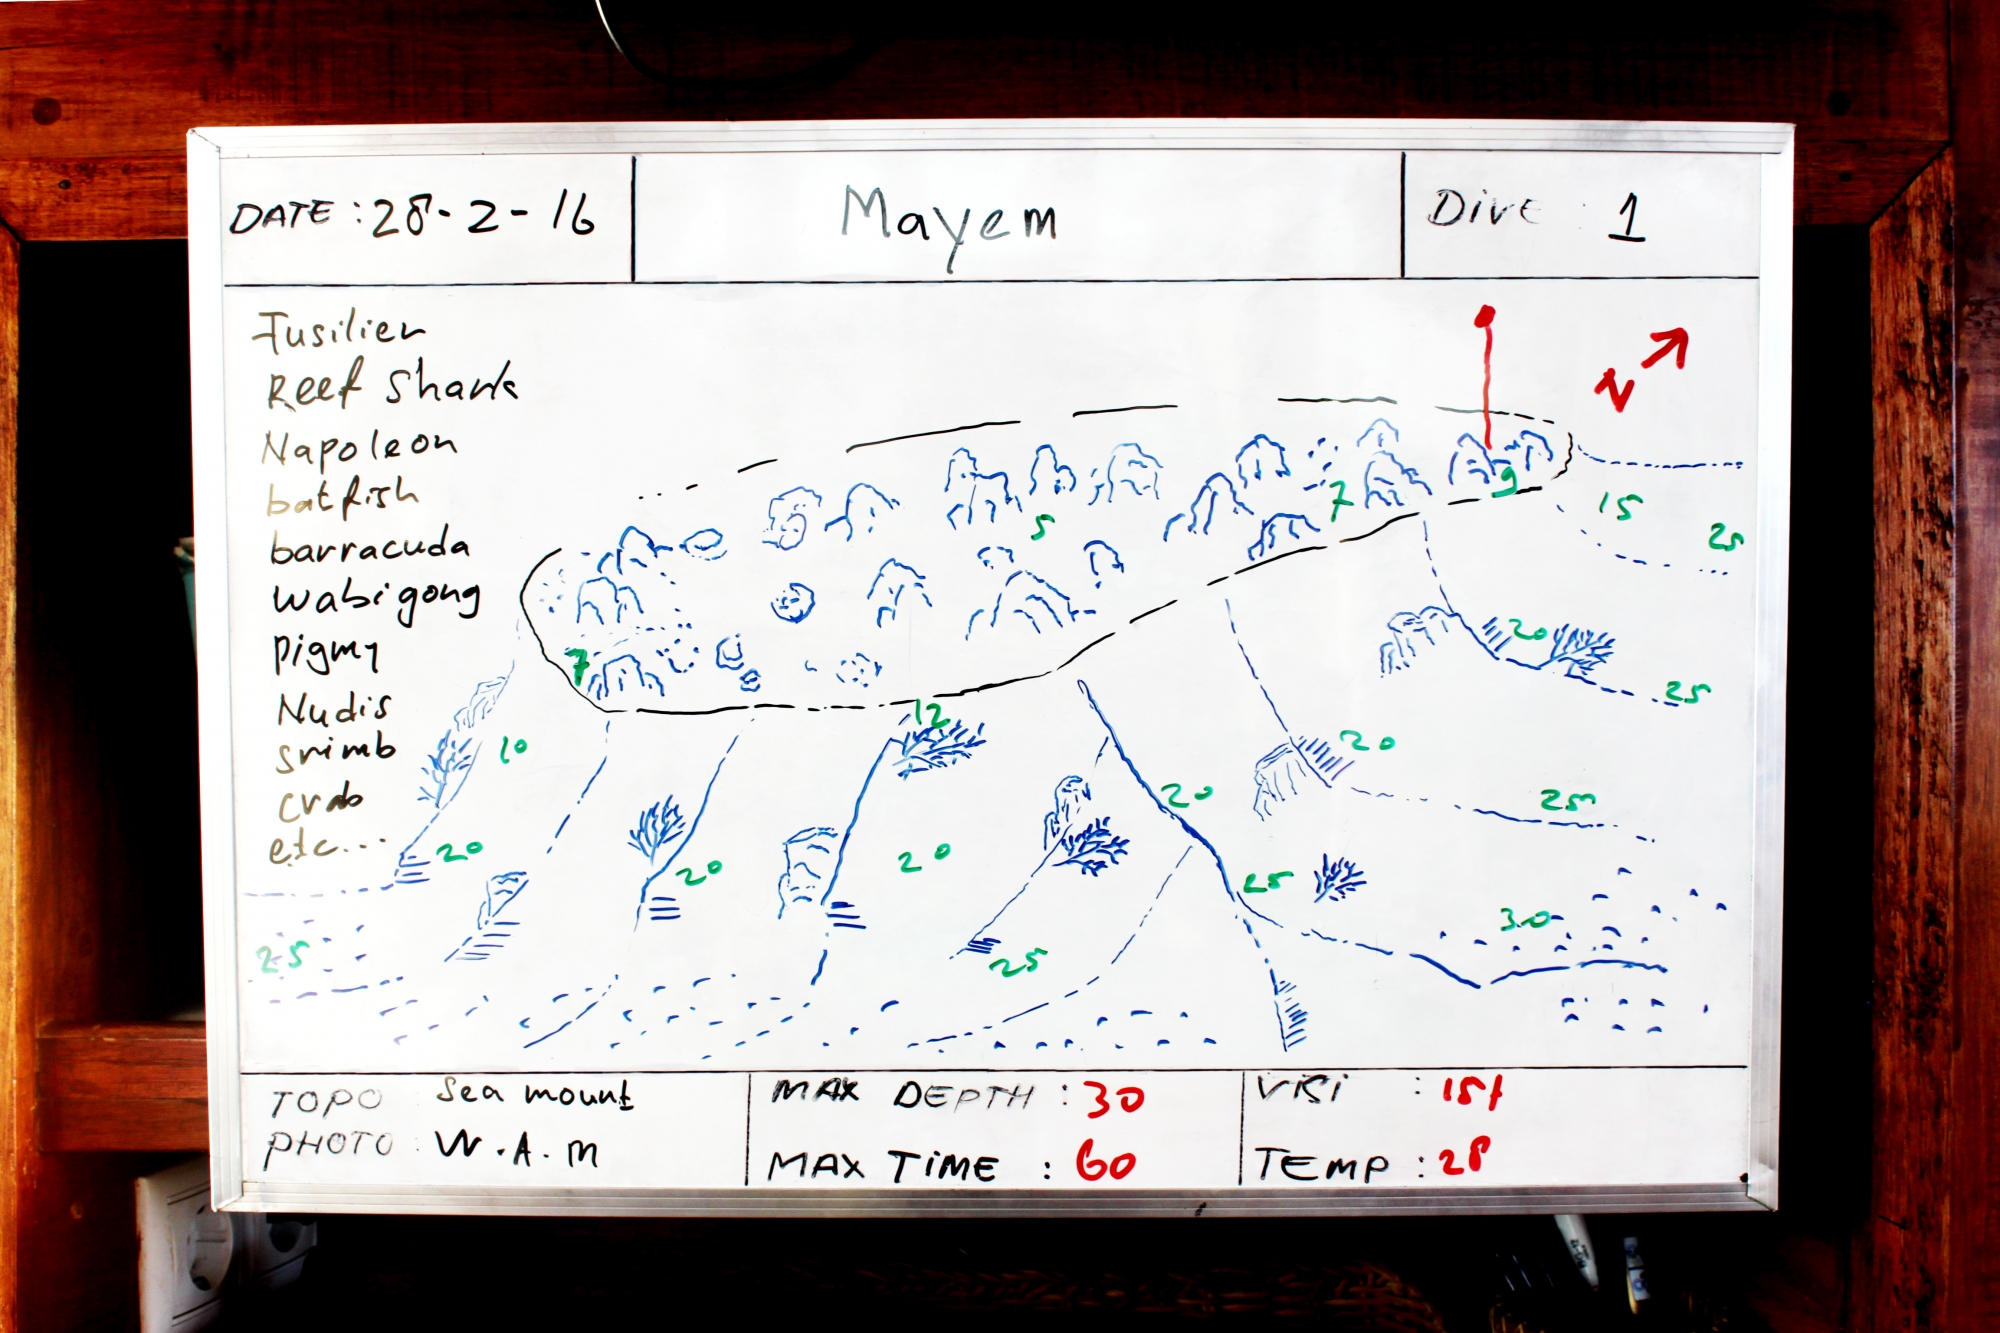 DATE : 28-2-16
Mayem
Dive : 1
Fusilier
Reef Shark
Napoleon
batfish
barracuda
Wabigong
Pigmy
Nudis
srimb
crab
etc...
N
9
7
5
15
25
7
20
25
12
10
20
20
25
20
20
20
25
30
25
25
TOPO : Sea mount
PHOTO : W.A.M
MAX DEPTH : 30
MAX TIME : 60
VISI : 15+
TEMP : 28